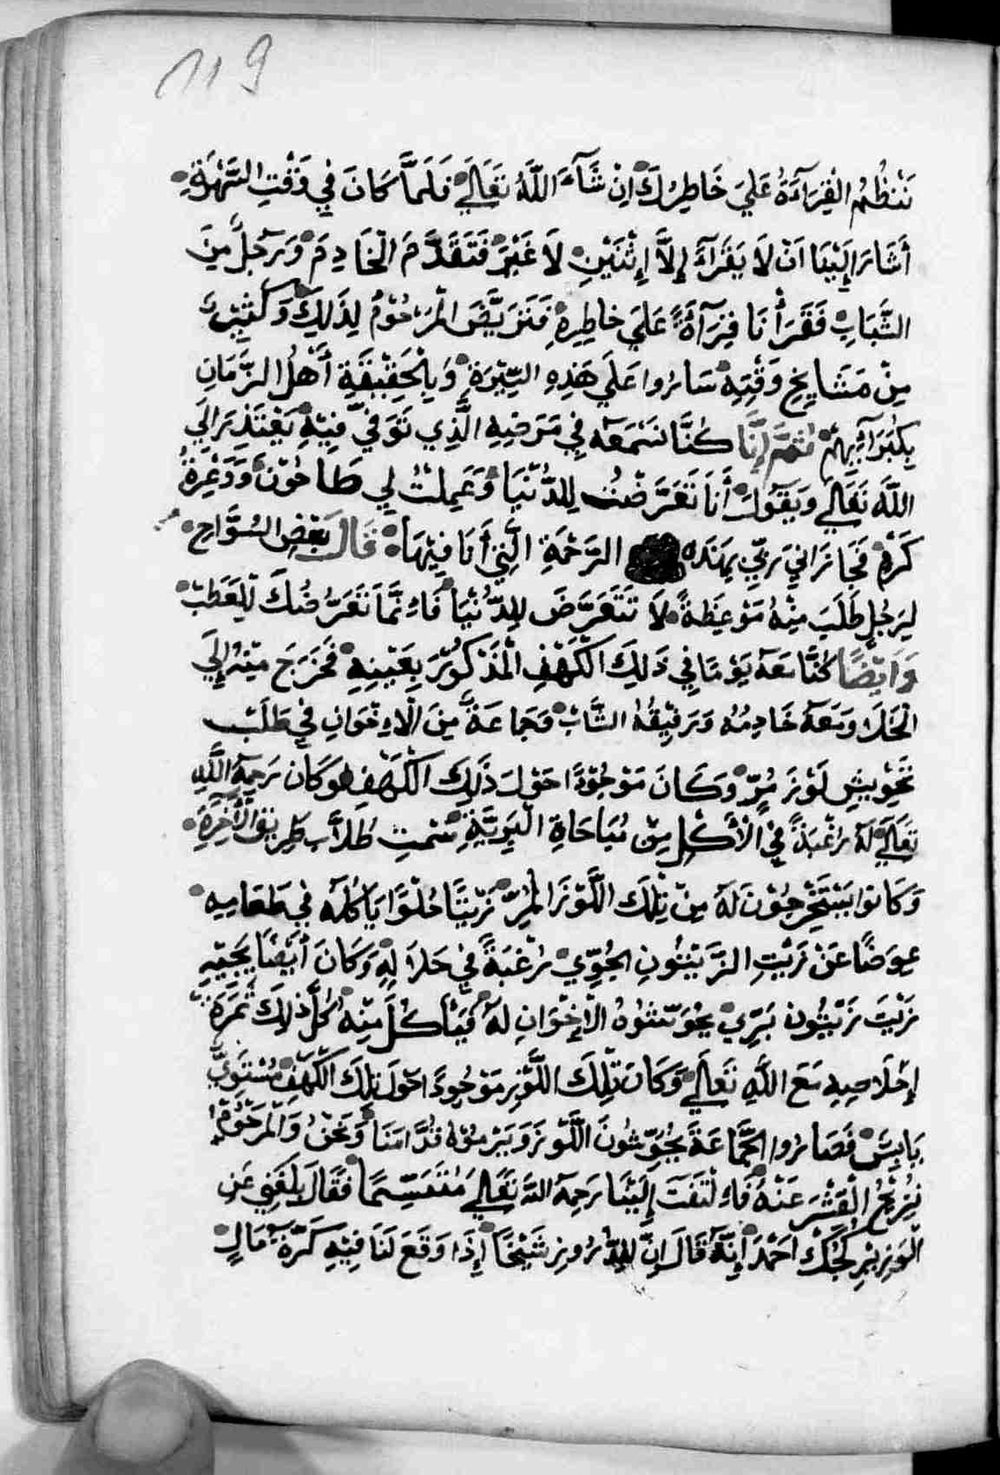 119
نَنْظُمُ الْقِرَآءَةُ عَلَيَ خَاطِرِكَ اِنْ شَآءَ اللَّهُ تَعَالَيْ فَلَمَّا كَانَ فِي وَقْتِ السَّهْرَةِ
أَشَارَ إِلَيْنَا انْ لَا يَقْرَآءَ إِلَّا إِثْنَيْنِ لَا غَيْرَ فَتَقَدَّمَ الْخَادِمَ وَرَجُلٌ مِنَ
الشَّبَابِ فَقَرَأْنَا قِرَآةً عَلَيَ خاطِرِهْ فَتَرَيَّضَ الْمَرْحُوْمُ لِذَلِكَ وَكَثِيْرٌ
مِنْ مَشَايِخِ وَقْتِهِ سَارُوا عَلَي هَذِهِ السِّيْرَةِ وَبِالْحَقِيْقَةِ أَهْلُ الزَّمَانِ
بِكُبَرَآئِهِمْ ثُمَّ إِنَّا كُنَّا نَسْمَعَه فِي مَرَضِهِ الَّذِي تَوَفَّيَ فِيْهِ يَعْتَذِرَ الَي
اللَّه تَعَالَي وَيَقُوْلُ أَنَا تَعَرَّضْتُ لِلدُّنْيَا وَعَمِلْتُ لِي طَاحُوْنَ وَدَعْرَةُ
كَرْمٍ فَجَازَانِي رَبِّي بِهَذِهِ الزَّحْمَةِ الَّتِي أَنَا فِيْهَا قَالَ بَعْضِ السُوَّاحِ
لِرَجُلٍ طَلَبَ مِنْهُ مَوْعِظَةً لَا تَتَعَرَّضَ لِلدُّنْيَا فَاِنَّمَا تَعَرُّضُكَ لِلْعَطَبْ
وَايْضًا كُنَّا مَعَه يَوْمًا فِي ذَلِكَ الْكَهْفِ الْمَذْكُوْرَ بِعَيْنِهِ فَخَرَجَ مِنْهُ إِلَي
الْخَلَا وَمَعَهُ خَادِمُه وَرَفِيْقُهُ الشَّابْ وَجَمَاعَةً مِنَ الْاِخْوَانِ فِي طَلَبْ
تَحْوِيْشِ لَوْزَ مُرّ وَكَانَ مَوْجُوْدًا حَوْلَ ذَلِكَ الْكَهْفِ وَكَانَ رَحِمَهُ اللَّهِ
تَعَالَيْ لَهُ رَغْبَةً فِي الْأَكْلِ مِنْ مُبَاحَاةِ الْبَرِيَّةِ شَمتِ طُلَّابِ طَرِيقِ الْأَخِرَةِ
وَكَانوا يَسْتَخْرِجُوْنَ لَهُ مِنْ تِلْكَ اللَّوْزَ الْمُرِّ زَيْتًا حُلْوًا يَاكُلَه فِي طَعَامِهِ
عِوَضًا عَنْ زَيْتِ الزَّيْتُونِ الْجُوِّي رَغْبَةً فِي حَلَالِهِ وَكَانَ أَيْضًا يَجِيْهِ
زَيْتَ زَيْتُون بَرِّي يُحَوِّشُوُهُ الْإِخْوَانِ لَهُ فَيَأكُلَ مِنْه كُلُّ ذَلِكَ ثَمَرَةَ
إِخْلَاصِهِ مَعَ اللَّهِ تَعَالَيْ وَكَانَ تِلْكَ اللَّوْزِ مَوْجُودًا حَوْلَ تِلْكَ الْكَهْفِ مُسْتَوِيٌّ
يَابِسٌ فَصَارُوا الْجَمَاعَةَ يُحَوِّشُونَ اللَّوْزَ وَيَرْمُوْهُ قُدَّامَنَا وَنَحْنُ وَالْمَرْحُوْمْ
نُزِيْحُ الْقَشْرَ عَنْهُ فَاِلْتَفَتَ إِلَيْنَا رَحِمَهُ اللَّه تَعَالَي مُتَبَسِّمًا فَقَالَ بَلَغَنِي عَنِ
الْوَزِيْرِ كُجُكْ احْمَدَ اِنَّه قَالَ اِنَّ لِلدُرُوزِ شَيْخًا إِذَا وَقَعَ لَنَا فِيْهِ كَرَّةْ مَالٍ